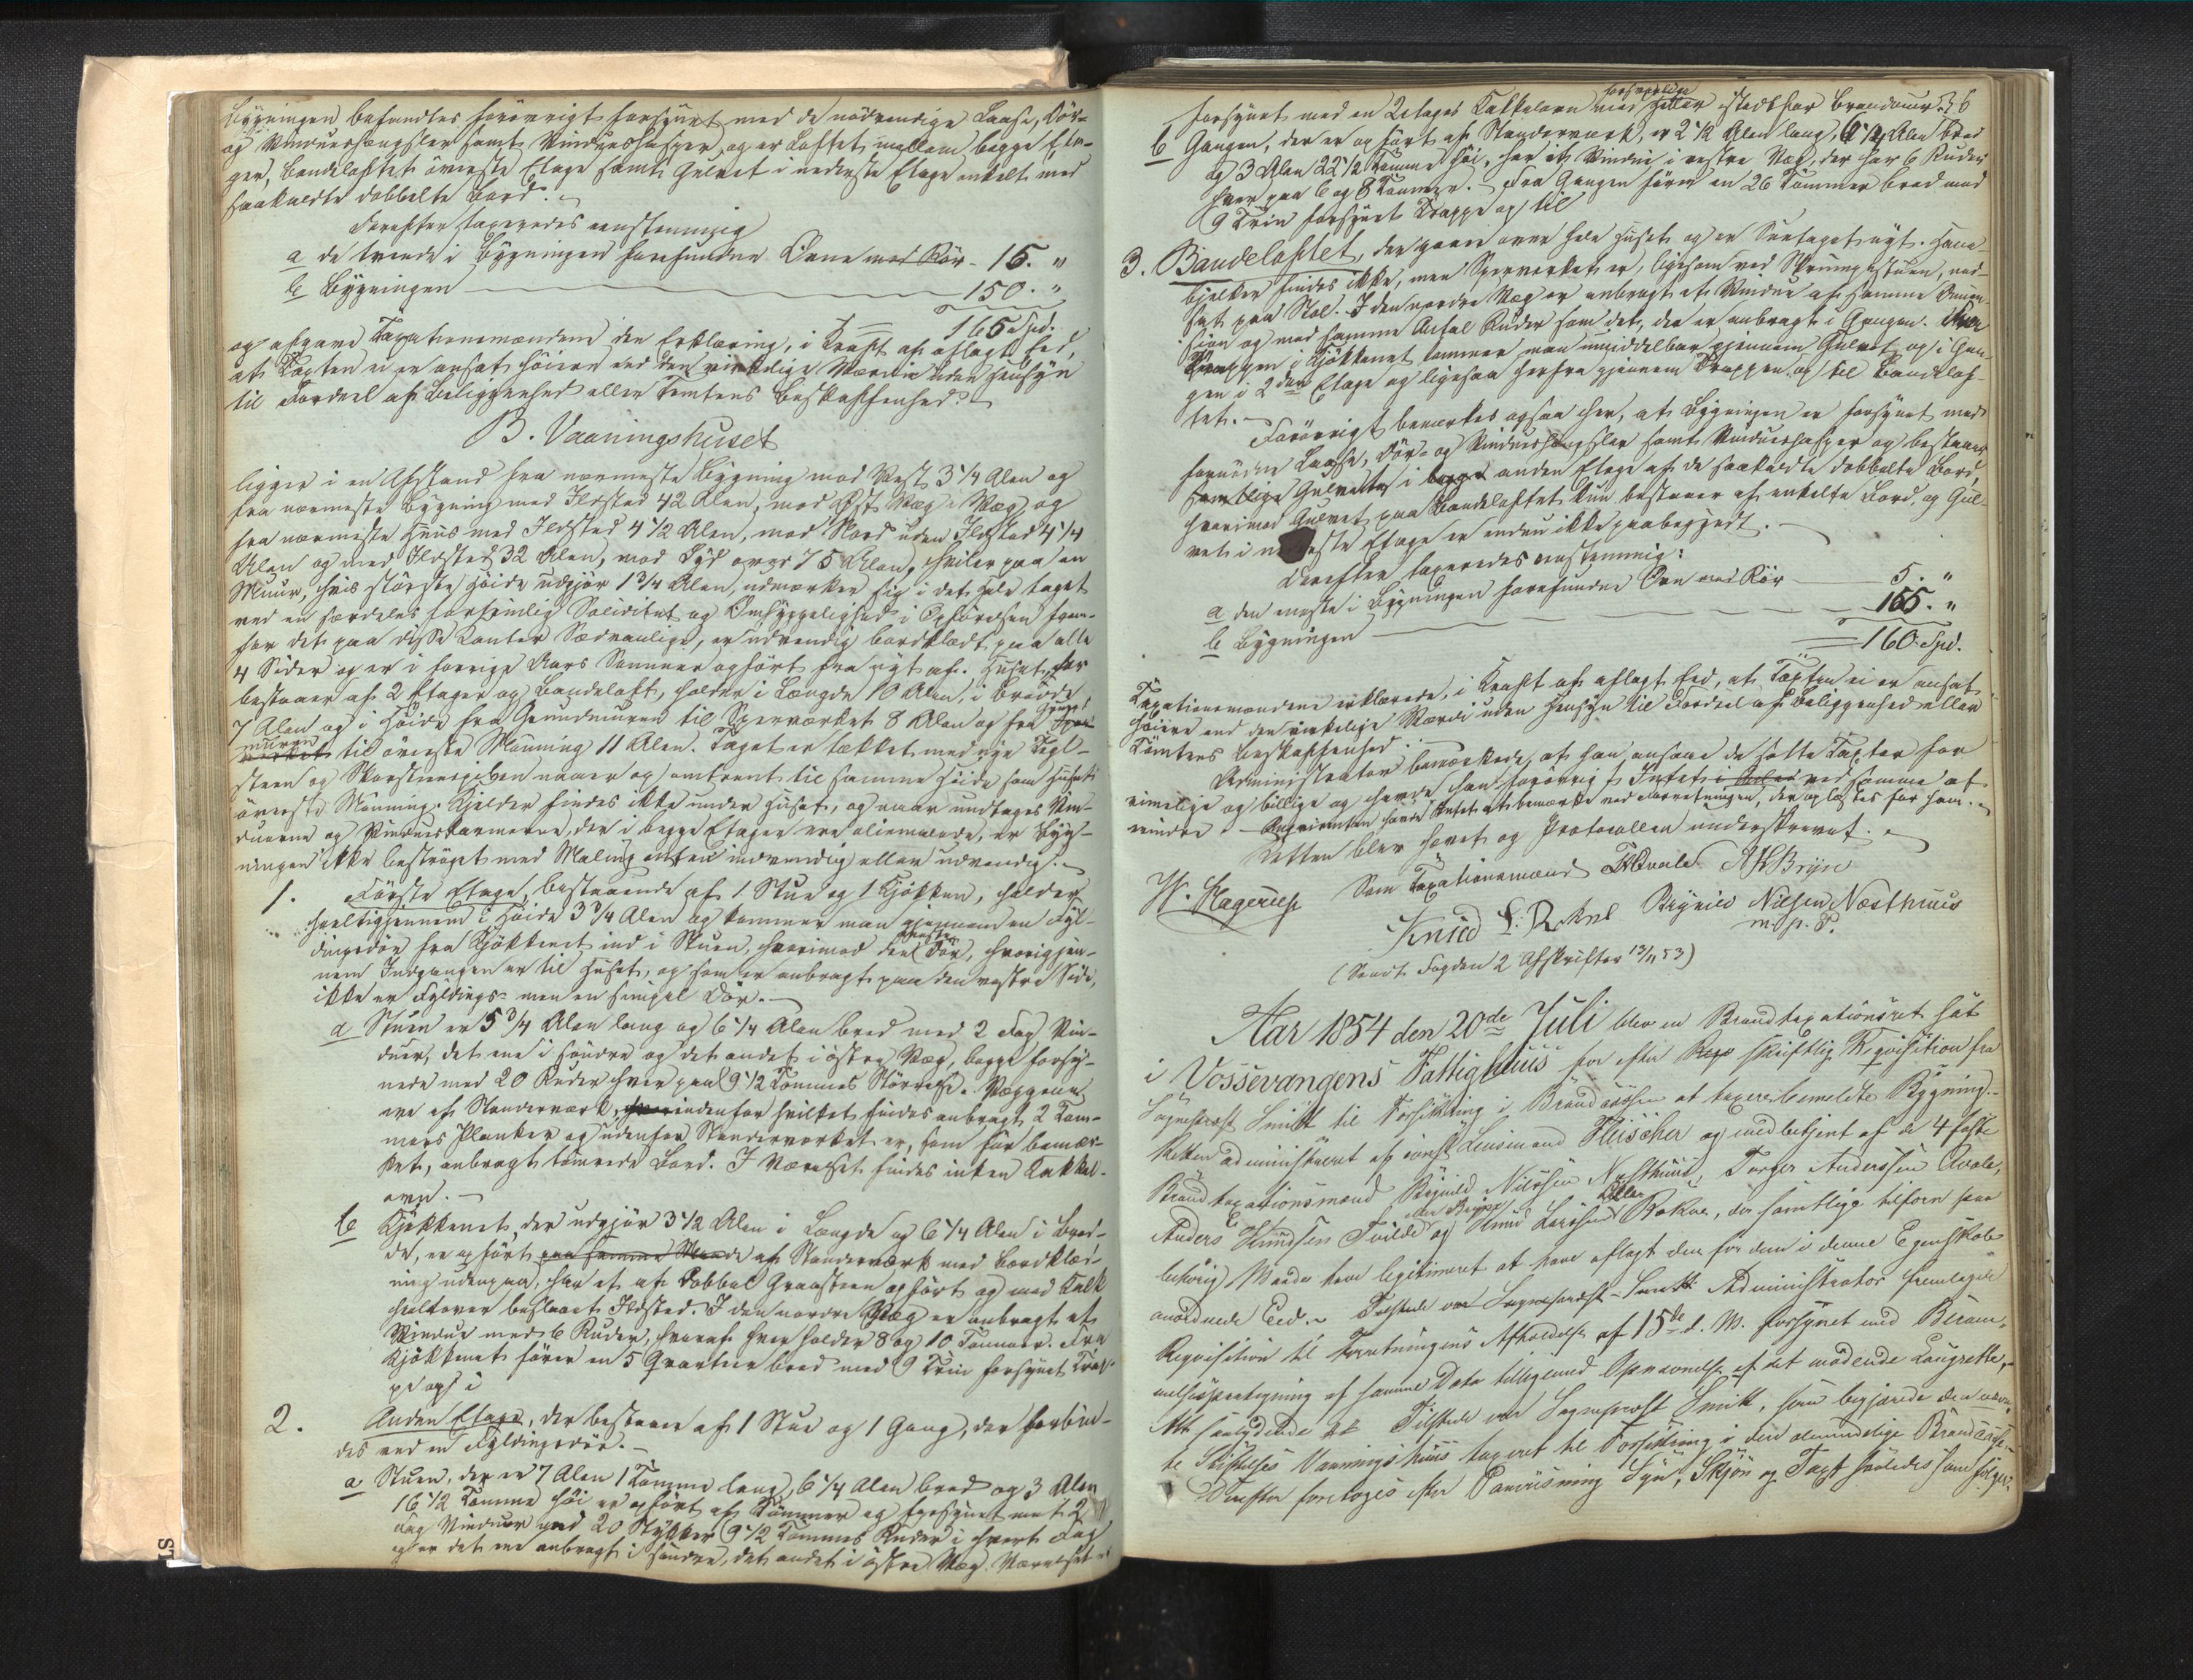 Bygningen befandtes forøvrigt forsynet med de nødvendige Laase, Dør-
og Vindueshængsler samt Vindueshasper, og er Loftet mellem begge Eta-
ger, Bandeloftets øverste Etage samt Gulvet i nederste Etage enkelt med
saakaldte dobbelte Bord.
Derefter taxeredes eenstemmig
a de tvende i Bygningen forefundne Ovne med Rör - 15. "
b Bygningen 150. "
165 Spd.
og afgave Taxationsmændene den Erklæring, i Kraft af aflagt Eed,
at Taxten ei er ansat høiere end den virkelige Værdie uden Hensyn
til Fordeel af Beliggenhed eller Tomtens Beskaffenhed.
B. Vaaningshuset
ligger i en Afstand fra nærmeste Bygning mod Vest 3 1/4 Alen og
fra nærmeste Bygning med Ildsted 42 Alen, mod Øst Væg i Væg og
fra nærmeste Huus med Ildsted 4 1/2 Alen, mod Nord uden Ildsted 4 1/4
Alen og med Ildsted 32 Alen, mod Syd over 75 Alen, hviler paa en
Muur, hvis største Høide udgjør 1 3/4 Alen, udmærker sig i det Hele taget
ved en særdeles forsvarlig Soliditet og Omhyggelighed i Opførelsen frem-
for det paa disse Kanter Sædvanlige, er udvendig bordklædt paa alle
4 Sider og er i forrige Aars Sommer opført fra nyt af. Huset, der
bestaaer af 2 Etager og Bandeloft, holder i Længde 10 Alen, i Bredde
7 Alen og i Høide fra Grundmuren til Sperværket 8 Alen og fra Grund-
muren til øverste Mønning 11 Alen. Taget er tækket med nye Tegl-
steen og Skorsteenspiben naaer op omtrent til samme Høide som Husets
øverste Mønning. Kjelder findes ikke under Huset, og naar undtages Vin-
duerne og Vindueskarmene, der i begge Etager ere oliemalede, er Byg-
ningen ikke bestrøget med Maling enten indvendig eller udvendig.
1. Første Etage, bestaaende af 1 Stue og 1 Kjøkken, holder
heeltigjennem i Høide 3 3/4 Alen og kommer man gjennem en Fyl-
dingsdør fra Kjøkkenet ind i Stuen, hvorimod den første Dør, hvorigjen-
nem Indgangen er til Huset, og som er anbragt paa den vestre Side,
ikke er Fyldings- men en simpel Dør.
a Stuen er 5 3/4 Alen lang og 6 1/4 Alen bred med 2 Fag Vin-
duer, det ene i søndre og det andet i østre Væg, begge forsy-
nede med 20 Ruder hver paa 9 1/2 Tommes Størrelse. Væggene
ere af Stenderværk, indenfor hvilket findes anbragt 2 Tom-
mers Planker og udenfor Stenderværket er, som før bemær-
ket, anbragt tømrede Bord. I Værelset findes ingen Kakkel-
ovn.
b Kjøkkenet, der udgjør 3 1/2 Alen i Længde og 6 1/4 Alen i Bred-
de, er opført paa samme Maade af Stenderværk med Bordklæd-
ning udenpaa, har et af dobbel Graasteen opført og med Kalk
heelt over beslaaet Ildsted. I den nordre Væg er anbragt et
Vindue med 6 Ruder, hvoraf hver holder 8 og 10 Tommer. Fra
Kjøkkenet fører en 5 Qvarteer bred med 9 Trin forsynet Trap-
pe op i
2. Anden Etage, der bestaaer af 1 Stue og 1 Gang, der forbin-
des ved en Fyldingsdør.
a Stuen, der er 7 Alen 1 Tomme lang, 6 1/4 Alen bred og 3 Alen
16 1/2 Tomme høi er opført af Tømmer og forsynet med 2
Fag Vinduer med 20 Stykker 9 1/2 Tommes Ruder i hvert Fag
og er det ene anbragt i søndre, det andet i østre Væg. Værelset er
forsynet med en 2 Etages Kakkelovn med forsvarlig Heller istedetfor Brandmuur.
b Gangen, der er opført af Stenderværk, er 2 1/2 Alen lang, 6 1/4 Alen bred
og 3 Alen 22 1/2 Tomme høi, har et Vindue i vestre Væg, der har 6 Ruder
hver paa 6 og 8 Tommer. - Fra Gangen fører en 26 Tommer bred med
9 Trin forsynet Trappe op til
3. Bandeloftet, der gaaer over hele Huset og er Suetaget nyt. Hane-
bjelker findes ikke, men Sperværket er, ligesom ved Skrivergstuen, ned-
sat paa Stol. I den nordre Væg er anbragt et Vindue af samme Dimen-
sion og med samme Antal Ruder som det, der er anbragt i Gangen. Ad
Trappen i Kjøkkenet kommer man umiddelbar gjennem Gulvet op i Gan-
gen i 2den Etage og ligesaa herfra gjennem Trappen op til Bandelof-
tet.
Forøvrigt bemærkes ogsaa her, at Bygningen er forsynet med
fornødne Laase, Dør- og Vindueshængsler samt Vindueshasper og bestaaer
samtlige Gulvene i anden Etage af de saakaldte dobbelte Bord,
hvorimod Gulvet paa Bandeloftet kun bestaaer af enkelte Bord, og Gul-
vet i nederste Etage er endnu ikke paabegyndt.
Derefter taxeredes eenstemmig:
a den eneste i Bygningen forefundne Ovn med Rör 5. "
b Bygningen 155. "
160. Spd.
Taxationsmændene erklærede, i Kraft af aflagt Eed, at Taxten ei er ansat
høiere end den virkelige Værdi uden Hensyn til Fordeel af Beliggenhed eller
Tomtens Beskaffenhed.
Administrator bemærkede, at han ansaae de satte Taxter for
rimelige og billige og havde han forøvrig Intet ved samme at
erindre - Requirenten havde Intet at bemærke ved Forretningen, der oplæstes for ham.
Retten blev hævet og Protocollen underskrevet.
W. Hagerup Som Taxationsmænd T A Qvale A K Brijn
Knud L. Rokne Brynild Nilsen Næsthuus
m. p. P.
(Sendt Fogden 2 Afskrifter 13/11 53)
Aar 1854 den 20de Juli blev en Brandtaxationsret sat
i Vossevangens Fattighuus for efter skriftlig Reqvisition fra
Sogneprest Smitt til Forsikring i Brandcassen at taxere bemeldte Bygning.
Retten administreret af const. Lensmand Fleischer og med betjent af de 4 faste
Brandtaxationsmænd Brynild Nilssen Næsthuus, Torger Anderssen Qvale,
Anders Knudsen Tvilde og Knud Larssen Rokne, der samtlige tilforn paa
lovlig Maade have legitimeret at have aflagt den for dem i denne Egenskab
anordnede Eed. - Tilstede var Sogneprest Smitt. Administrator fremlagde
Reqvisition til Forretningens Afholdelse af 15de d. M. forsynet med Beram-
melsespaategning af samme Dato tilligemed Opnævnelse af det mødende Laugrette,
Alt saalydende ## Tilstede var Sogneprest Smitt, som begjærede den nævn-
te Stiftelses Vaaningshuus taxeret til Forsikring i den almindelige Brandcasse.
Derefter foretoges efter Paaviisning Syn, Skjøn og Taxt saaledes som følger: